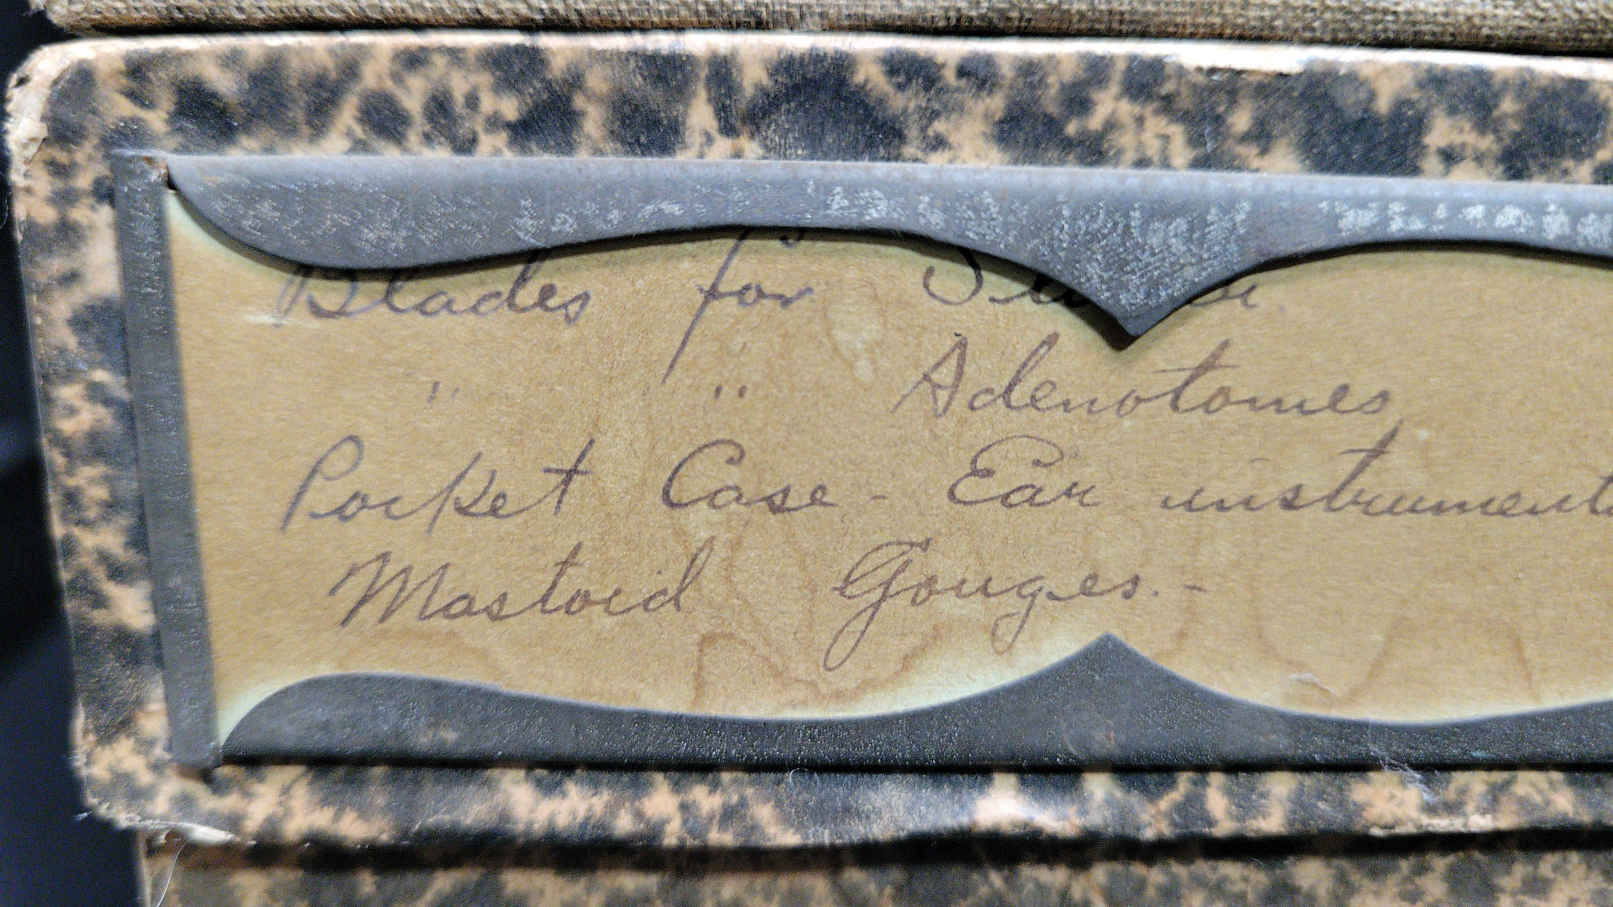 Blades for
" " Adenotomes
Pocket Case - Ear instruments
Mastoid Gouges.-